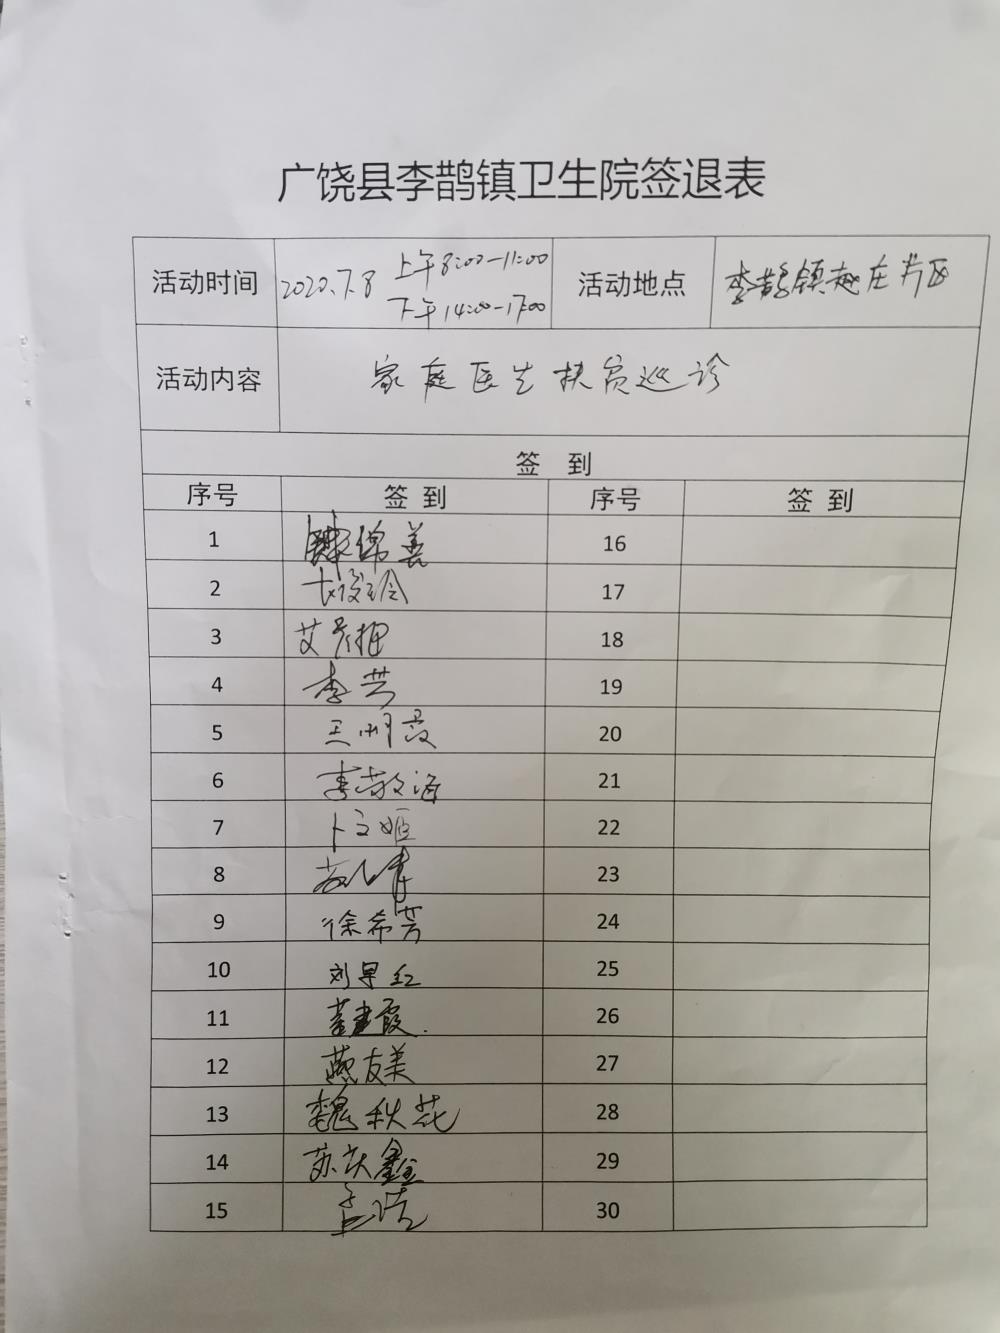 广饶县李鹊镇卫生院签退表
活动时间 2020.7.8 上午8:00-11:00 活动地点 李鹊镇赵庄片区
下午14:00-17:00
活动内容 家庭医生扶贫巡诊
签 到
序号 签 到 序号 签 到
1 绵善 16
2 17
3 艾 18
4 李芸 19
5 王明霞 20
6 李敬海 21
7 卜文姬 22
8 23
9 徐希芳 24
10 刘早红 25
11 董建霞. 26
12 燕友美 27
13 魏秋花 28
14 苏庆鑫 29
15 孟 30